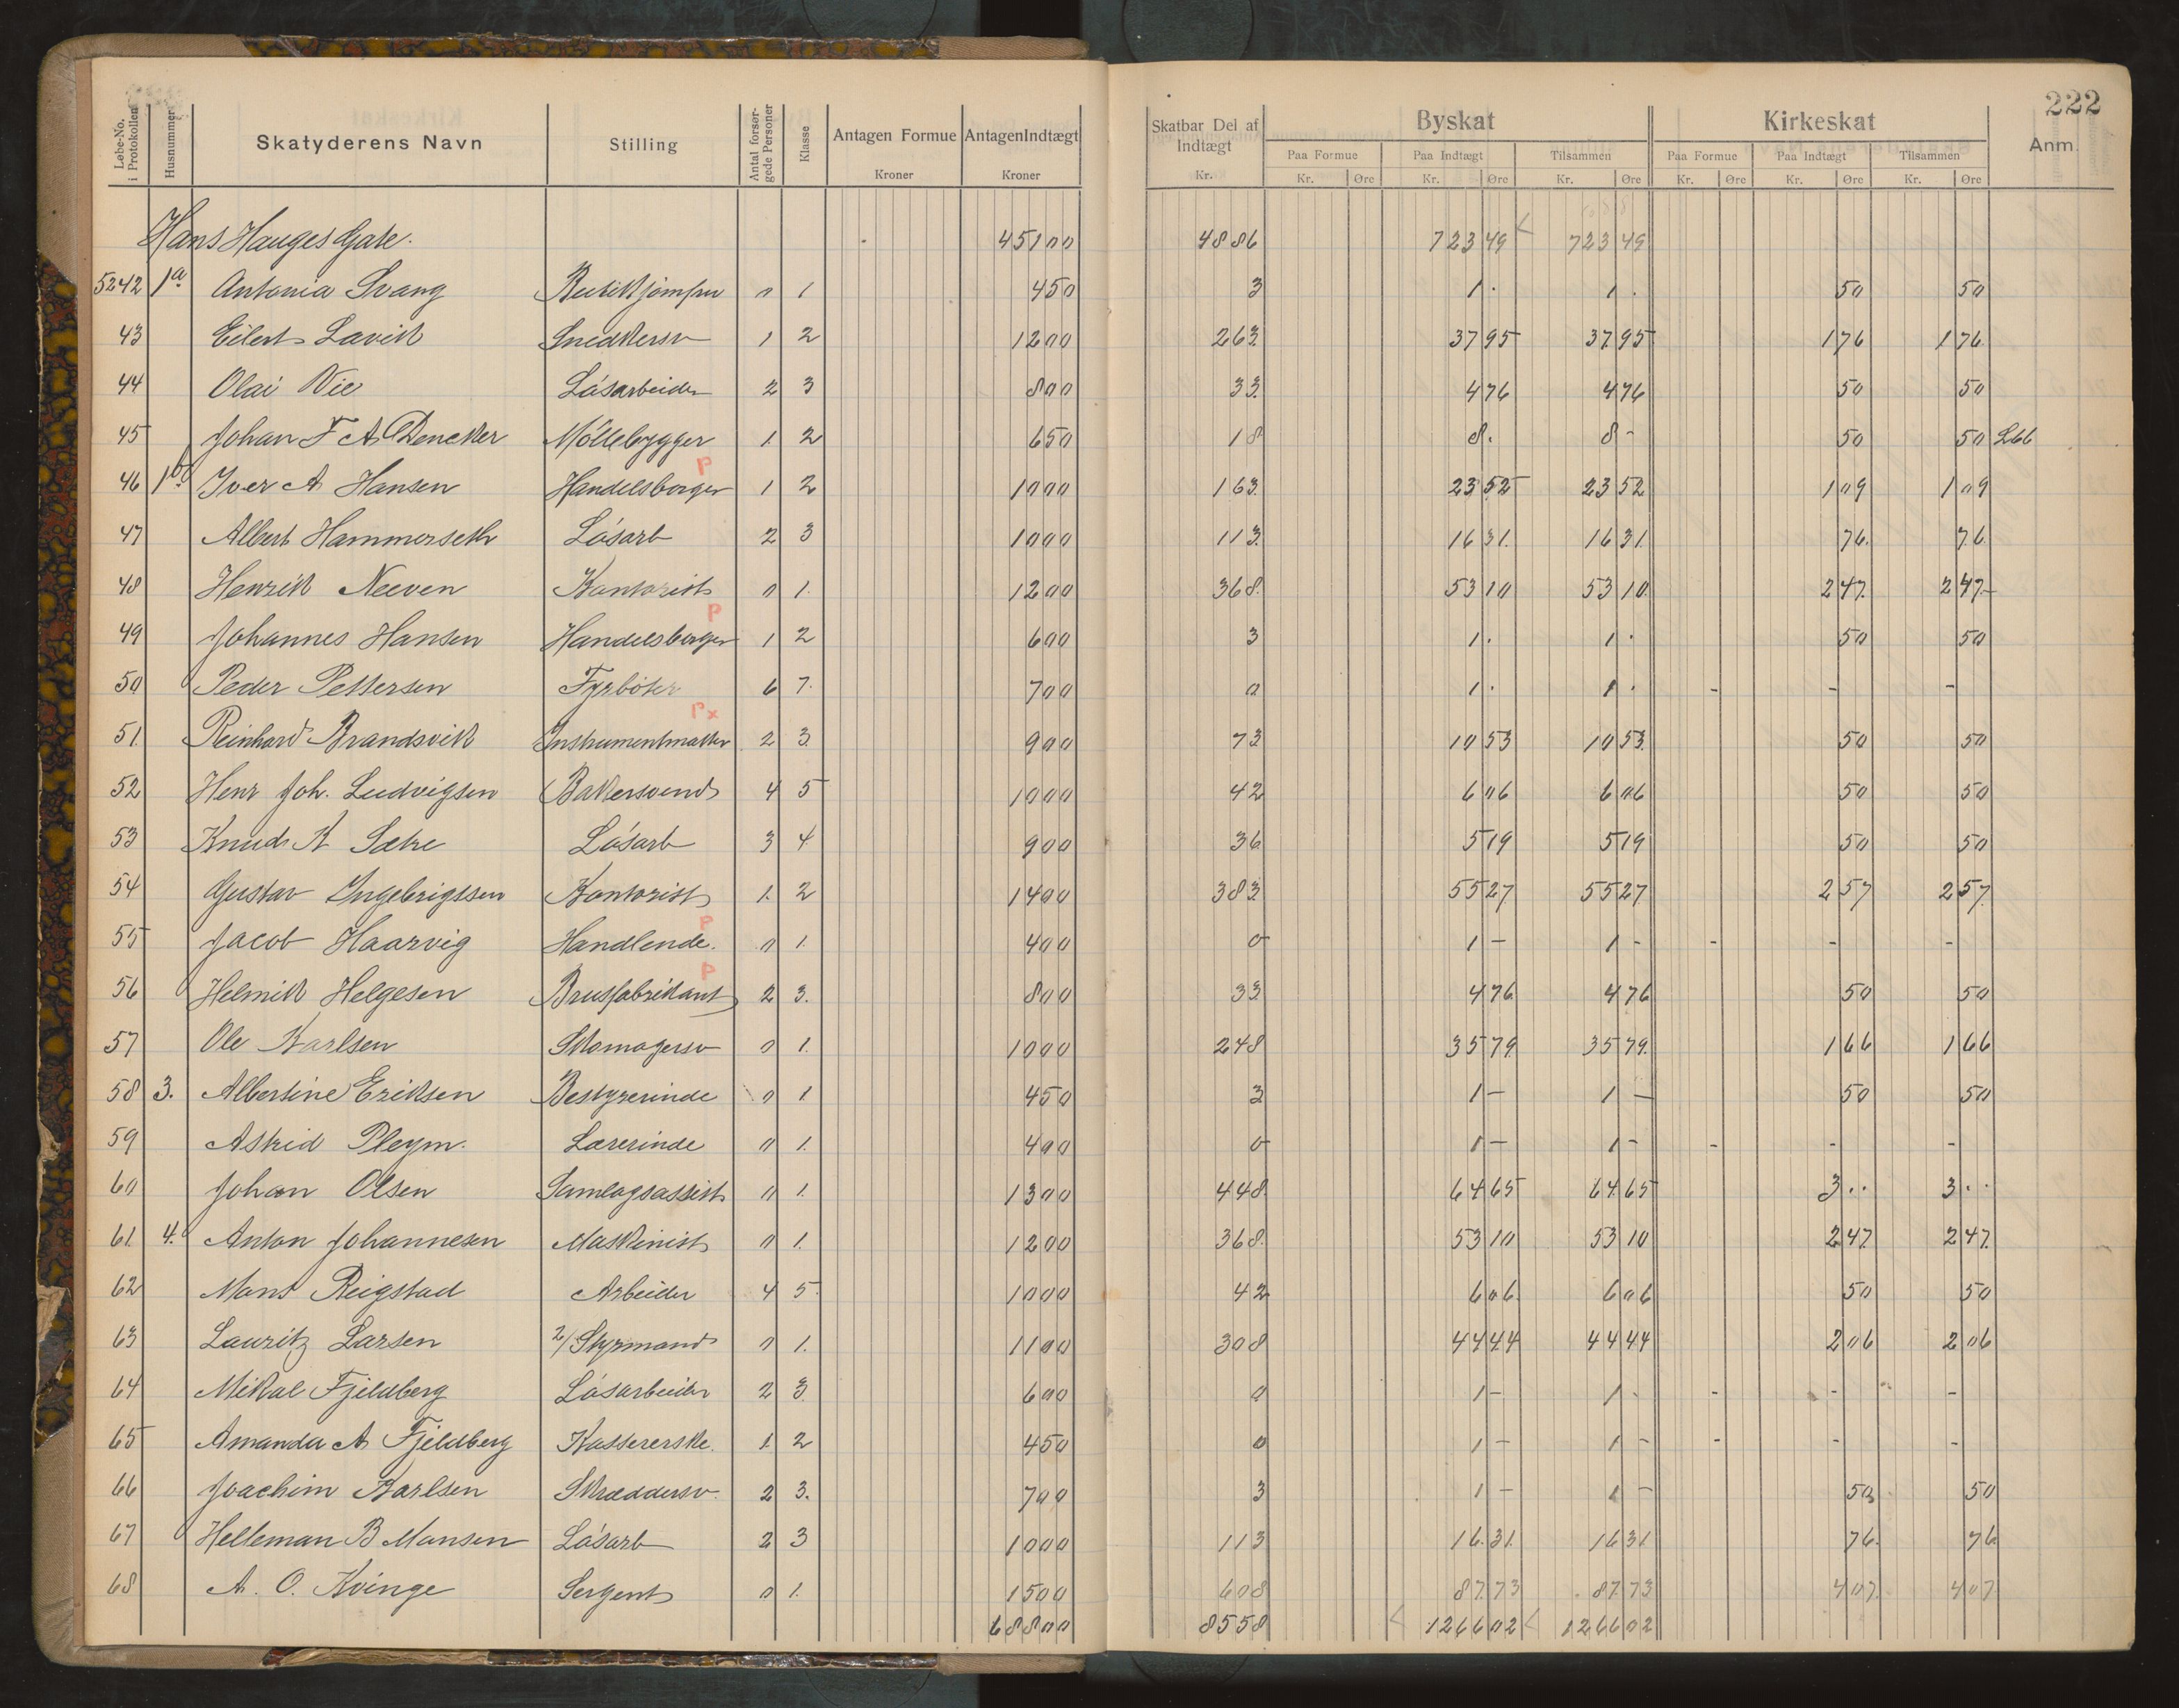 222
Løbe-No. i Protokollen | Husnummer | Skatyderens Navn | Stilling | Antal forsørgede Personer | Klasse | Antagen Formue Kroner | Antagen Indtægt Kroner | Skatbar Del af Indtægt Kr. | Byskat | Kirkeskat | Anm.
Paa Formue | Paa Indtægt | Tilsammen | Paa Formue | Paa Indtægt | Tilsammen
Kr. | Øre | Kr. | Øre | Kr. | Øre | Kr. | Øre | Kr. | Øre | Kr. | Øre
Hans Hauges Gate. 45100 4886 723 49 723 49
5242 1a Antonia Svang Butikkjomfru 0 1 450 3 1 . 1 . 50 50
43 Eilert Lavik Snedkersv 1 2 1200 263 37 95 37 95 1 76 1 76
44 Olai Vie Løsarbeider 2 3 800 33 4 76 4 76 50 50
45 Johan F A Dencker Møllebygger 1 2 650 18 8 . 8 - 50 50 L66
46 1b Iver A Hansen Handelsborger P 1 2 1000 163 23 52 23 52 1 09 1 09
47 Albert Hammerseth Løsarb 2 3 1000 113 16 31 16 31 76 76
48 Henrik Neeven Kontorist 0 1 1200 368 53 10 53 10 2 47 2 47
49 Johannes Hansen Handelsborger P 1 2 600 3 1 . 1 . 50 50
50 Peder Pettersen Fyrbøter 6 7 700 0 1 . 1 . - - -
51 Reinhard Brandsvik Instrumentmaker P x 2 3 900 73 10 53 10 53 50 50
52 Henr Joh. Ludvigsen Bakersvend 4 5 1000 42 6 06 6 06 50 50
53 Knud K Sætre Løsarb 3 4 900 36 5 19 5 19 50 50
54 Gustav Ingebrigtsen Kontorist 1 2 1400 383 55 27 55 27 2 57 2 57
55 Jacob Haarvig Handlende. P 0 1 400 0 1 - 1 - - - -
56 Helmik Helgesen Brusfabrikant P 2 3. 800 33 4 76 4 76 50 50
57 Ole Karlsen Skomagersv 0 1 1000 248 35 79 35 79 1 66 1 66
58 3. Albertine Eriksen Bestyrerinde 0 1 450 3 1 - 1 - 50 50
59 Astrid Pleym. Lærerinde 0 1. 400 0 1 - 1 - - - -
60 Johan Olsen Samlagsassist 0 1. 1300 448 64 65 64 65 3 . . 3 . .
61 4. Anton Johannesen Maskinist 0 1. 1200 368 53 10 53 10 2 47 2 47
62 Mons Reigstad Arbeider 4 5 1000 42 6 06 6 06 50 50
63 Lauritz Larsen 2/ Styrmand 0 1. 1100 308 44 44 44 44 2 06 2 06
64 Mikal Fjeldberg Løsarbeider 2 3 600 0 1 - 1 - - - -
65 Amanda A Fjeldberg Kassererske. 1 2 450 0 1 - 1 - - - -
66 Joachim Karlsen Skræddersv. 2 3. 700 3 1 - 1 - 50 50
67 Helleman B Monsen Løsarb 2 3 1000 113 16 31 16 31 76 76
68 A. O. Kvinge Sergent 0 1. 1500 608 87 73 87 73 4 07 4 07
68800 8558 1266 02 1266 02